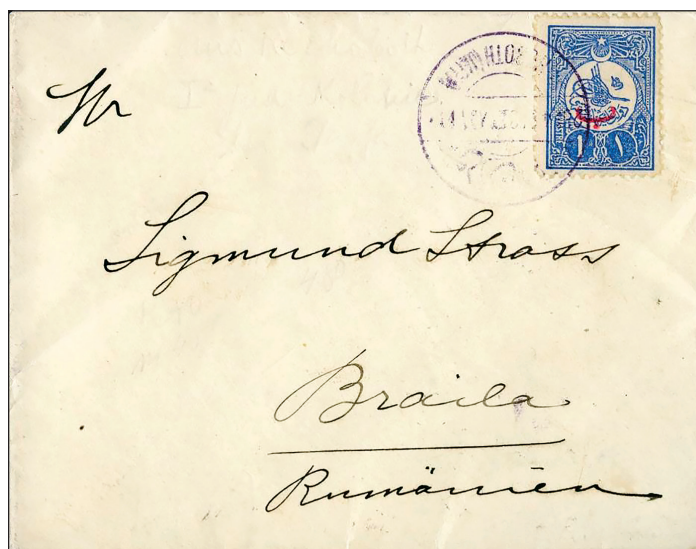 Hr
Sigmund Strass
Braila
Rumänien
١ ١